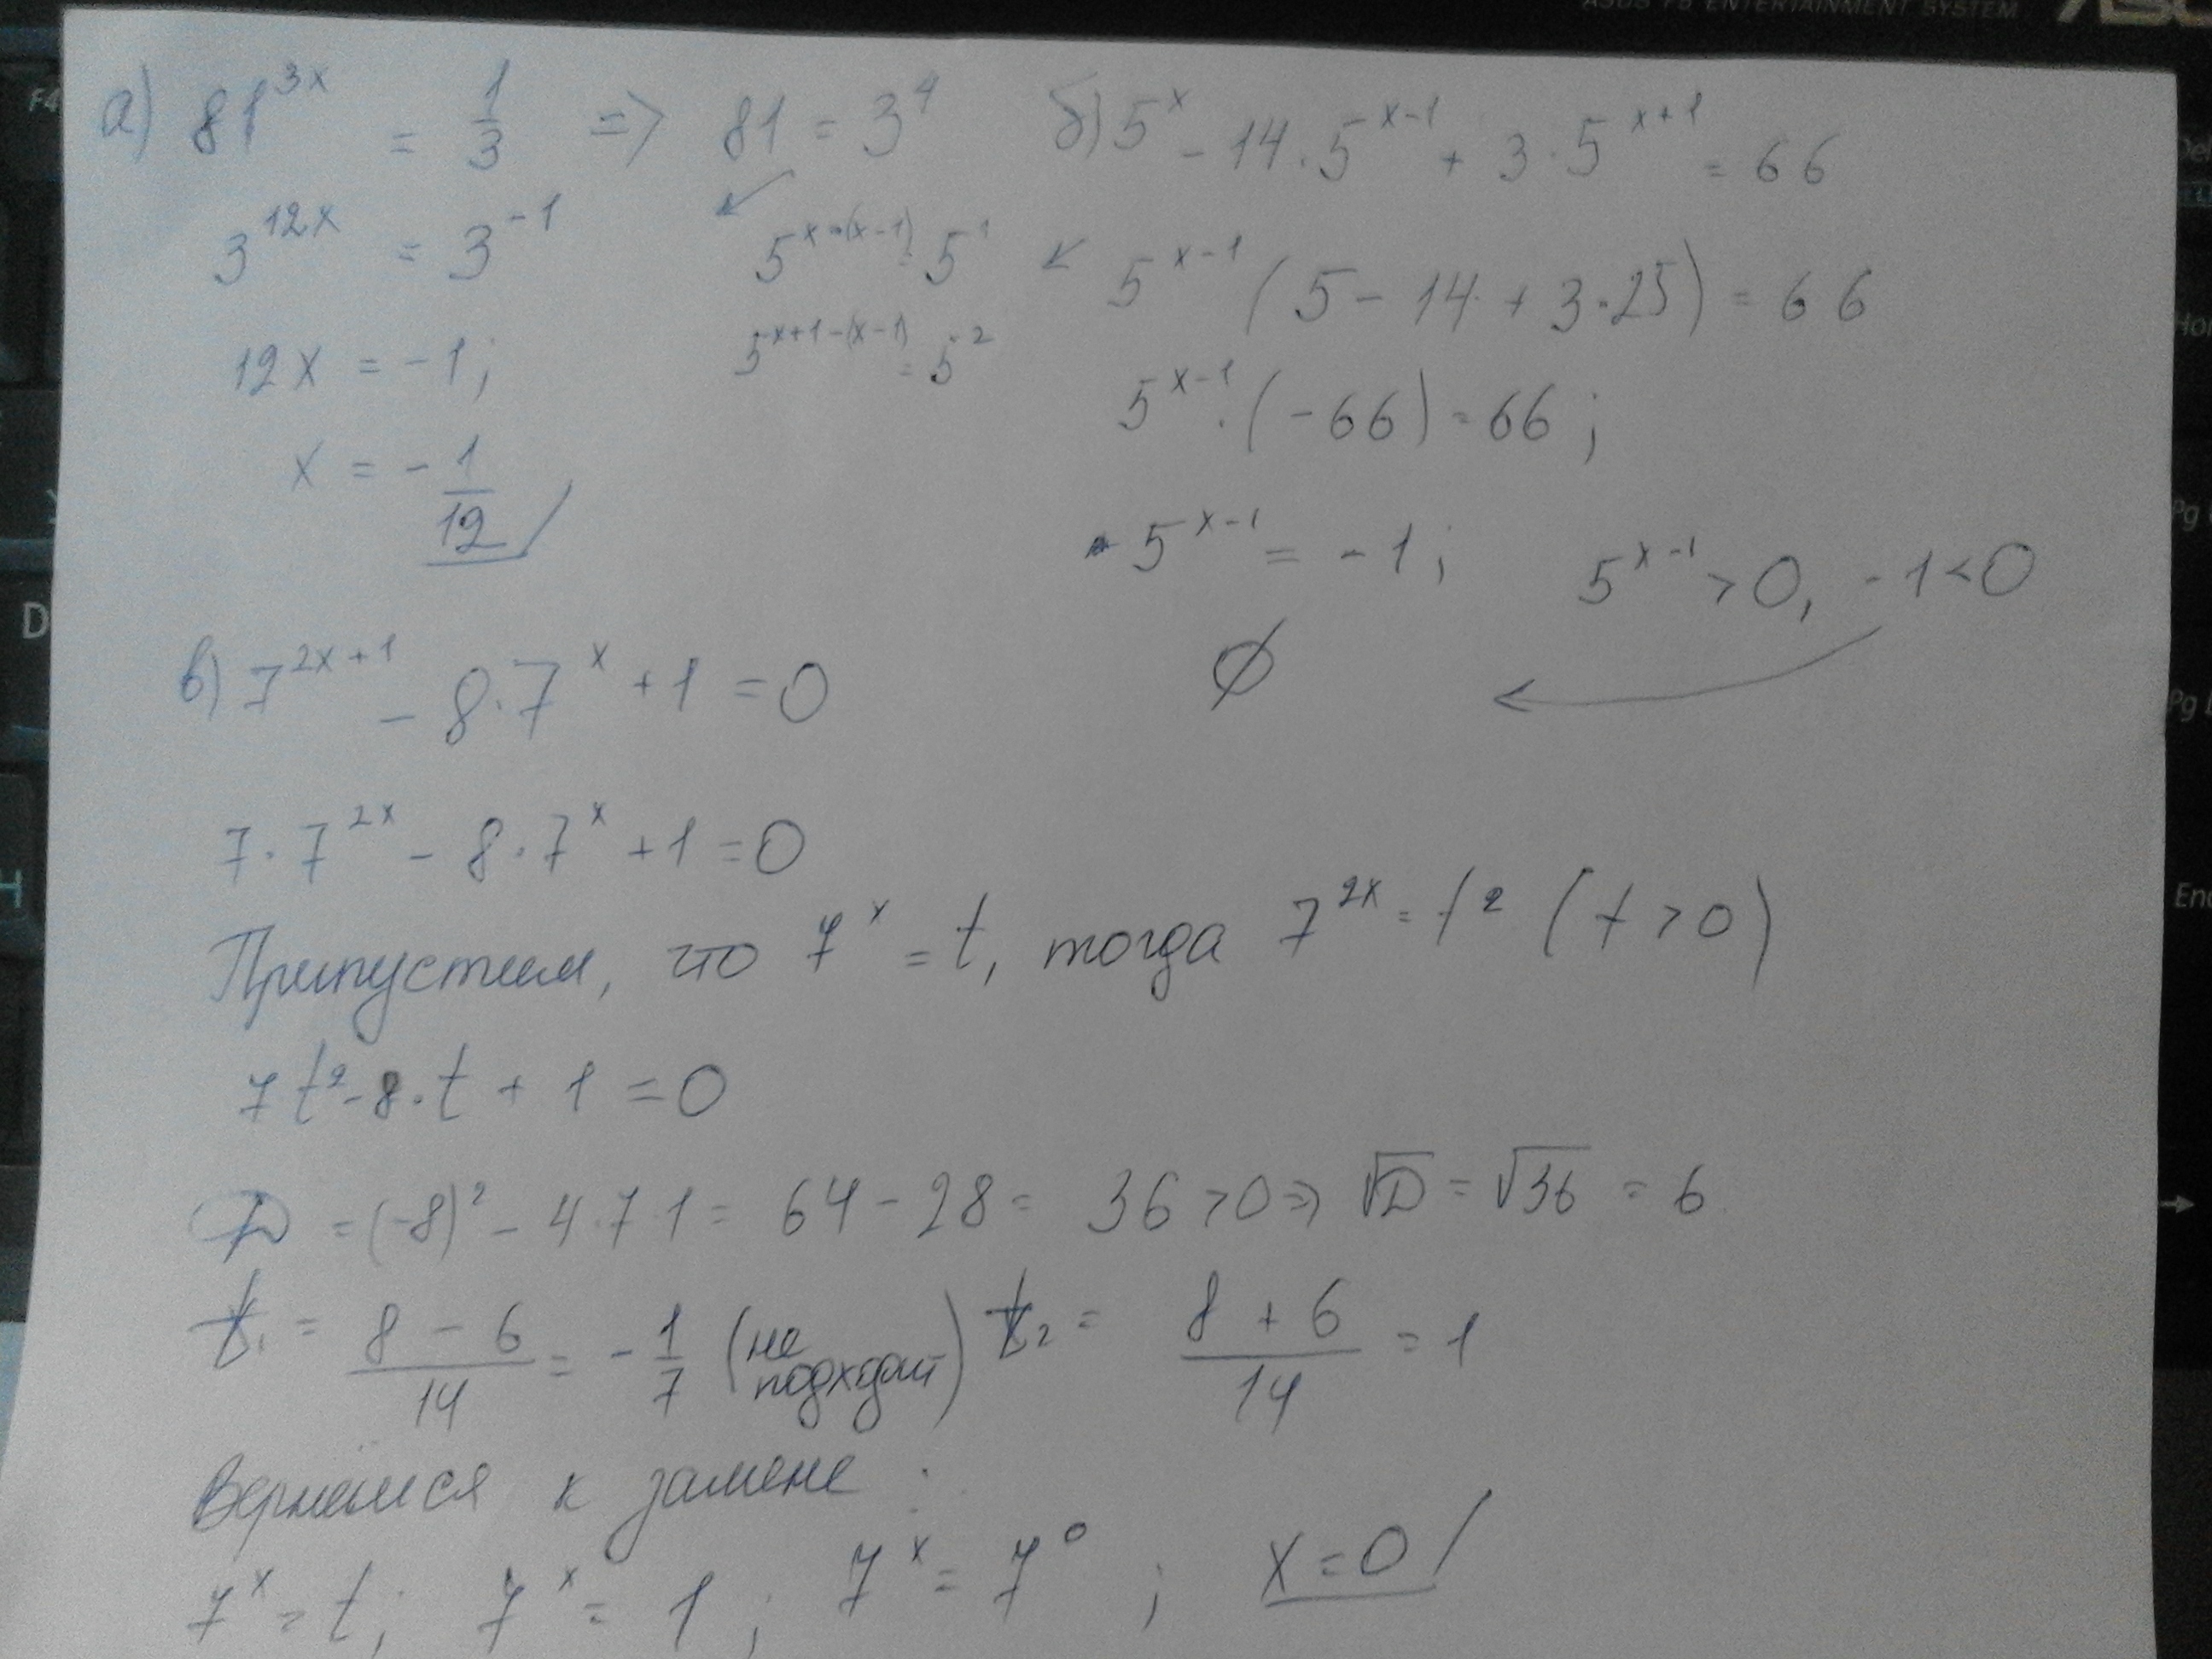 ASUS F5 ENTERTAINMENT SYSTEM
а) 81^{3x} = 1/3 => 81 = 3^4
3^{12x} = 3^{-1}
12x = -1;
x = -1/12
б) 5^x - 14·5^{x-1} + 3·5^{x+1} = 66
5^{x-(x-1)} = 5^1
5^{x+1-(x-1)} = 5^2
5^{x-1}(5 - 14 + 3·25) = 66
5^{x-1}·(-66) = 66;
5^{x-1} = -1; 5^{x-1} > 0, -1 < 0
∅
в) 7^{2x+1} - 8·7^x + 1 = 0
7·7^{2x} - 8·7^x + 1 = 0
Припустим, что 7^x = t, тогда 7^{2x} = t^2 (t > 0)
7t^2 - 8·t + 1 = 0
D = (-8)^2 - 4·7·1 = 64 - 28 = 36 > 0 => √D = √36 = 6
t_1 = (8 - 6)/14 = -1/7 (не подходит) t_2 = (8 + 6)/14 = 1
Вернемся к замене:
7^x = t; 7^x = 1; 7^x = 7^0; x = 0
F4
D
Н
Del
Pg
Pg
End